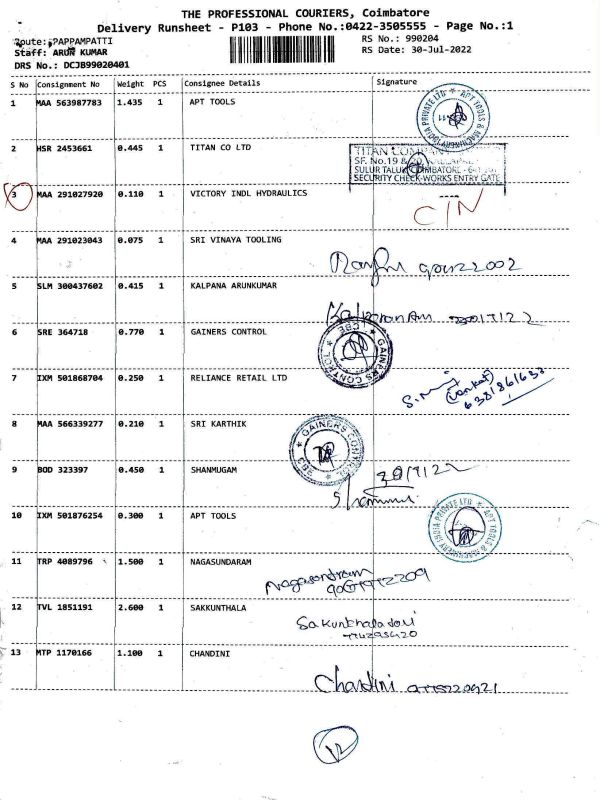 THE PROFESSIONAL COURIERS, Coimbatore
Delivery Runsheet - P103 - Phone No.:0422-3505555 - Page No.:1
Route: PAPPAMPATTI
RS No.: 990204
Staff: ARUN KUMAR
RS Date: 30-Jul-2022
DRS No.: DCJB99020401
S No Consignment No Weight PCS Consignee Details Signature
1 MAA 563987783 1.435 1 APT TOOLS
APT TOOLS & MACHINERY INDIA PRIVATE LTD
2 HSR 2453661 0.445 1 TITAN CO LTD
TITAN COMPANY
SF. No.19 & 20,
SULUR TALUK, COIMBATORE -
SECURITY CHECK-WORKS ENTRY GATE
3 MAA 291027920 0.110 1 VICTORY INDL HYDRAULICS
C/N
4 MAA 291023043 0.075 1 SRI VINAYA TOOLING
5 SLM 300437602 0.415 1 KALPANA ARUNKUMAR
6 SRE 364718 0.770 1 GAINERS CONTROL
GAINERS CONTROL
7 IXM 501868704 0.250 1 RELIANCE RETAIL LTD
8 MAA 566339277 0.210 1 SRI KARTHIK
GAINERS CONTROL
9 BOD 323397 0.450 1 SHANMUGAM
30/7/22
10 IXM 501876254 0.300 1 APT TOOLS
APT TOOLS & MACHINERY INDIA PRIVATE LTD
11 TRP 4089796 1.500 1 NAGASUNDARAM
Nagasundram
12 TVL 1851191 2.600 1 SAKKUNTHALA
13 MTP 1170166 1.100 1 CHANDINI
Chandini
12